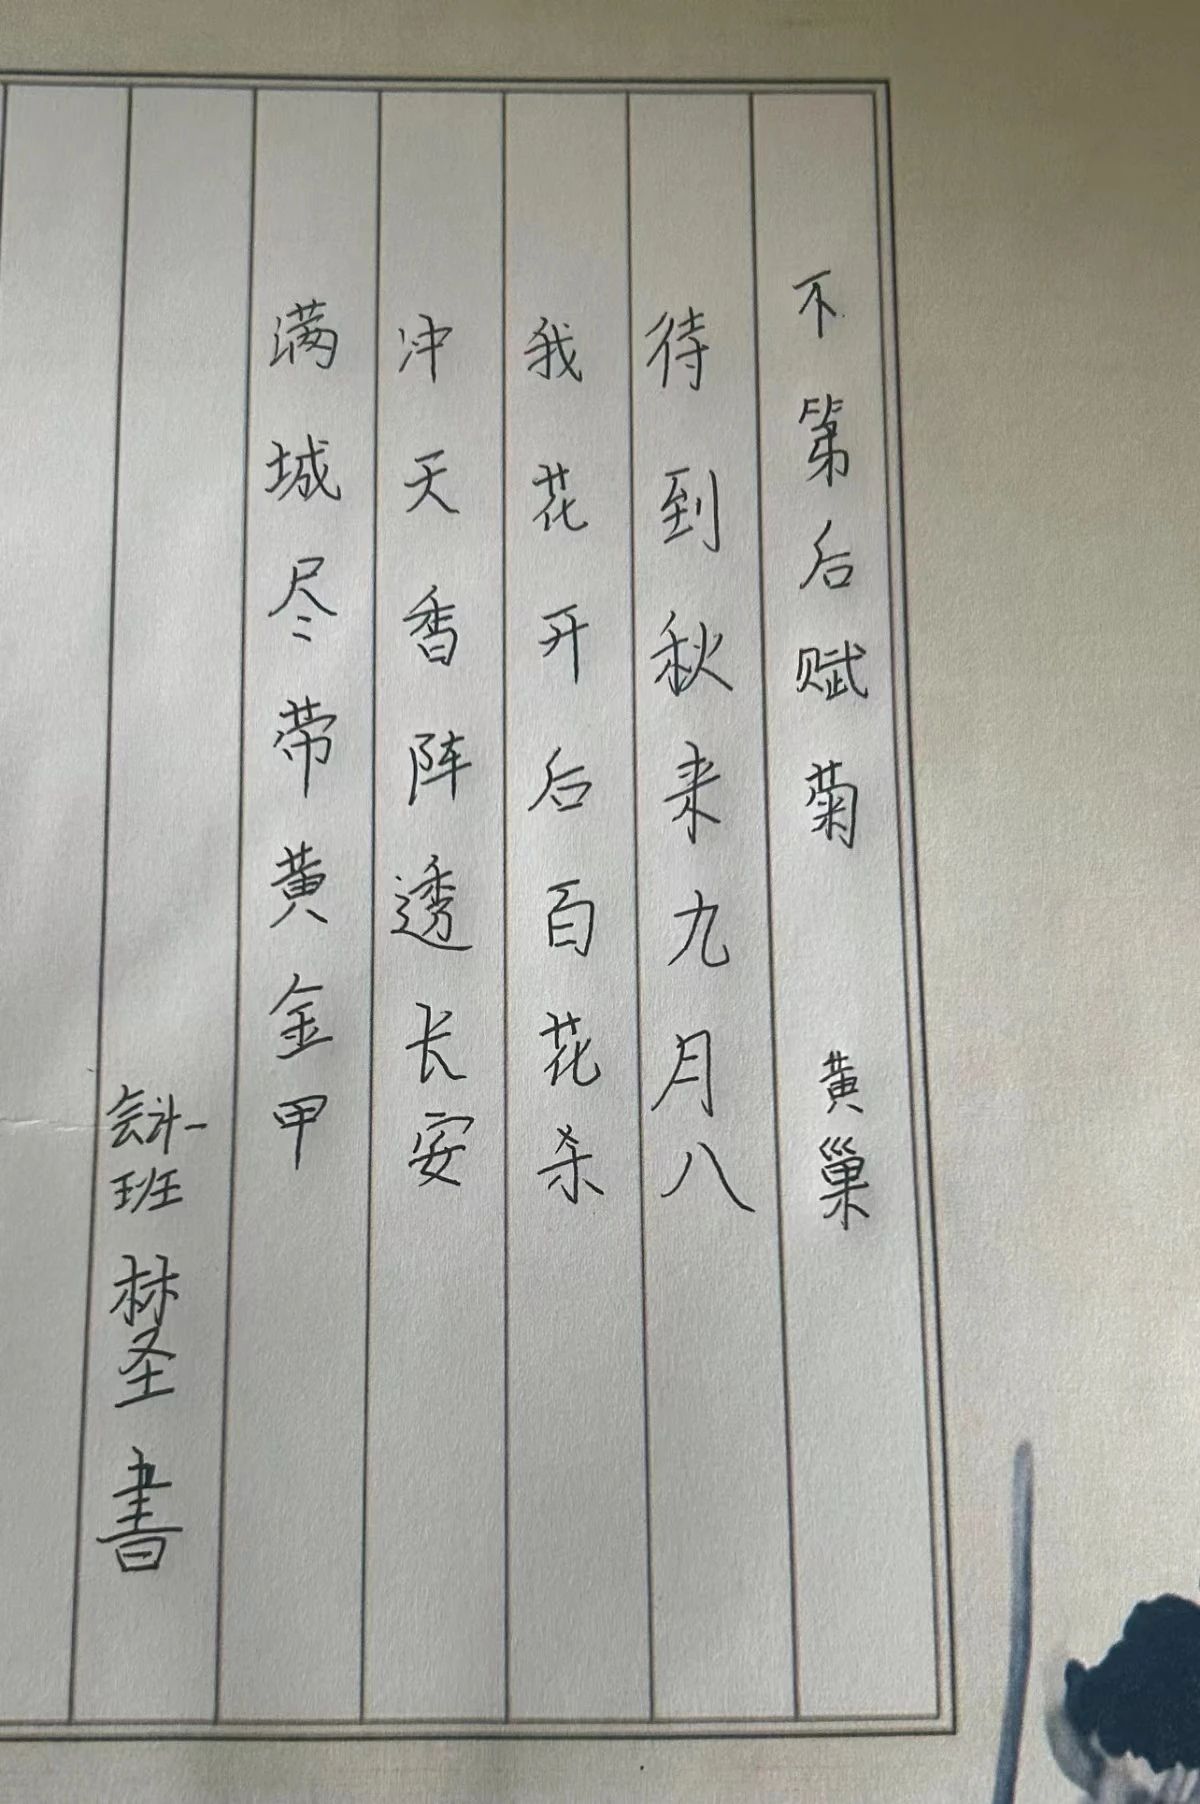 不第后赋菊 黄巢
待到秋来九月八
我花开后百花杀
冲天香阵透长安
满城尽带黄金甲
会计一班 林圣 書